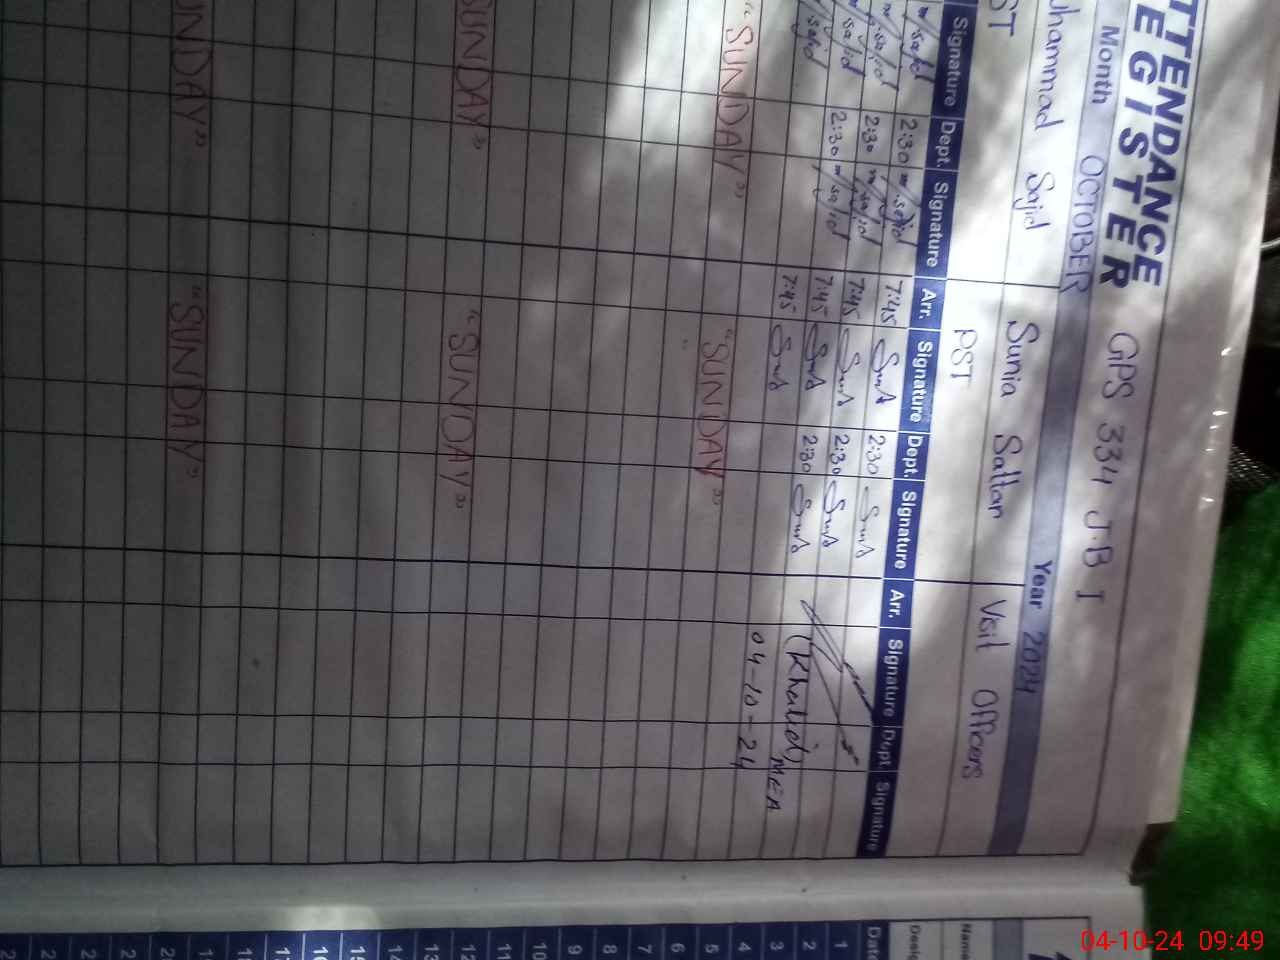 ATTENDANCE
REGISTER GPS 334 J.B I
Month OCTOBER Year 2024
Muhammad Sajid Sunia Sattar Visit Officers
PST PST
Signature Dept. Signature Arr. Signature Dept. Signature Arr. Signature Dept. Signature
m/sajid 2:30 m.sajid 7:45 2:30
m/sajid 2:30 m/sajid 7:45 2:30
m/sajid 2:30 m/sajid 7:45 2:30
m/sajid 7:45 (Khalid) MEA
04-10-24
"SUNDAY" "SUNDAY"
"SUNDAY" "SUNDAY"
"SUNDAY" "SUNDAY"
Name
Desig
Date
1
2
3
4
5
6
7
8
9
10
11
12
13
14
15
16
17
04-10-24 09:49